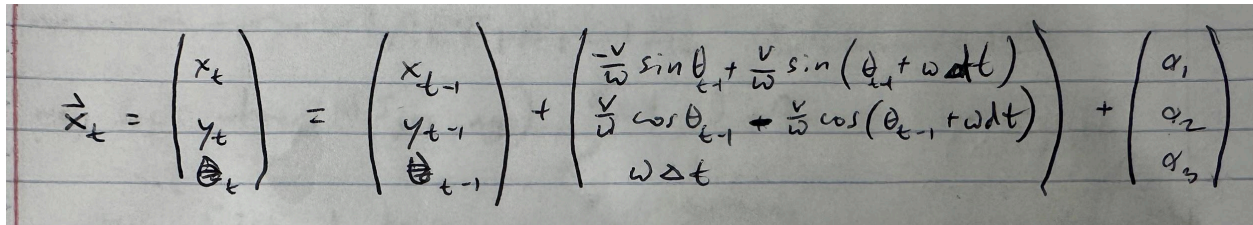 x⃗_t = (x_t, y_t, θ_t) = (x_{t-1}, y_{t-1}, θ_{t-1}) + (-v/ω sin θ_{t-1} + v/ω sin(θ_{t-1} + ω dt), v/ω cos θ_{t-1} - v/ω cos(θ_{t-1} + ω dt), ω Δt) + (α_1, α_2, α_3)